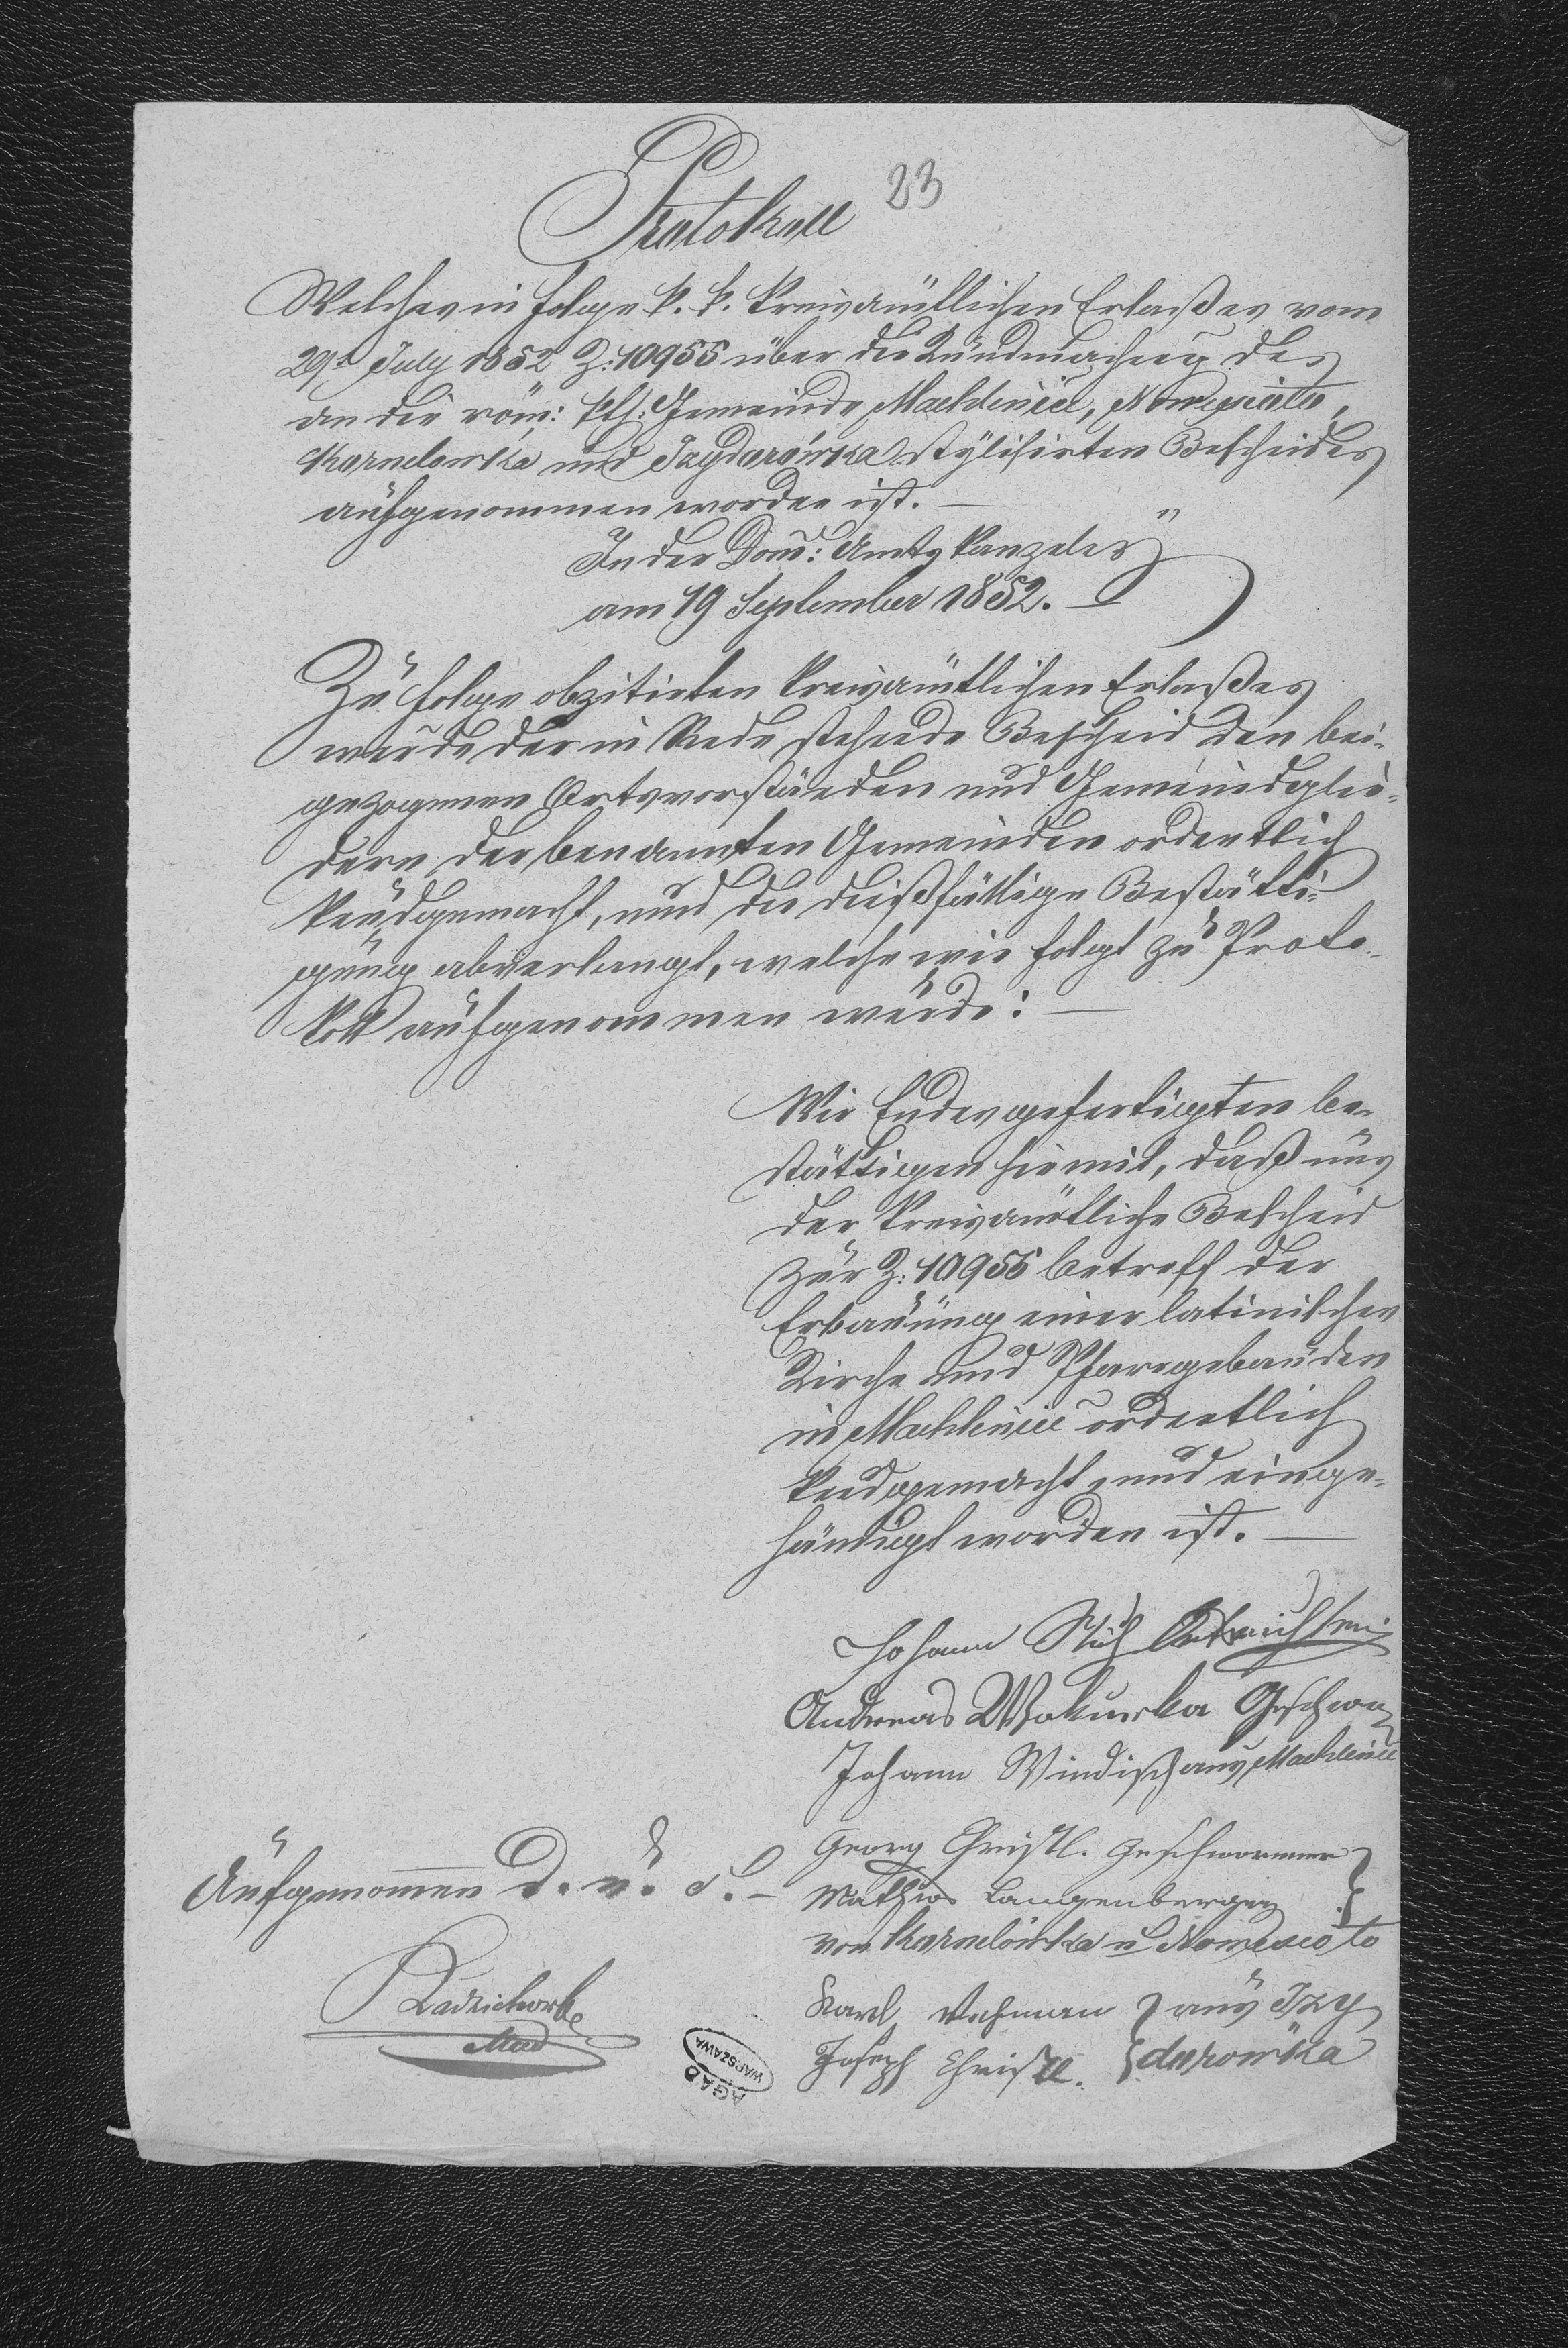 23
Protokoll
Welches in folge k. k. kreisämtlichen Erlaßes vom
29t July 1852 Z: 10955 über die Kundmachung des
an die röm: kth: Gemeinde Machliniec, Nowesioło,
Kornelowka und Izydorówka stylisirten Bescheides
aufgenommen worden ist. —
In der Dom: Amtskanzeley
am 19 September 1852. —
Zu folge obzitirten kreisämtlichen Erlaßes
wurde der in Rede stehende Bescheid den bei-
gezogenen Ortsvorständen und Gemeindglie-
dern der benannten Gemeinden ordentlich
kundgemacht, und die dießfällige Bestätti-
gung abverlangt, welche wie folgt zu Proto-
koll aufgenommen wurde: —
Wir Endesgefertigten be-
stättigen hiemit, daß uns
der kreisämtliche Bescheid
zur Z: 10955 betreff der
Erbauung einer latinischen
Kirche und Pfarrgebäuden
in Machliniec ordentlich
kundgemacht und einge-
händigt worden ist. —
Johann Ortsrichter
Andreas Wokurka Geschwor
Johann Windisch aus Machliniec
Georg Christl. Geschworner
Mathias Langenberger
von Kornelówka u Nowesioło
Karl aus Izy
Joseph Christl. dorowka
Aufgenommen D. u. S. —
AGAD
WARSZAWA